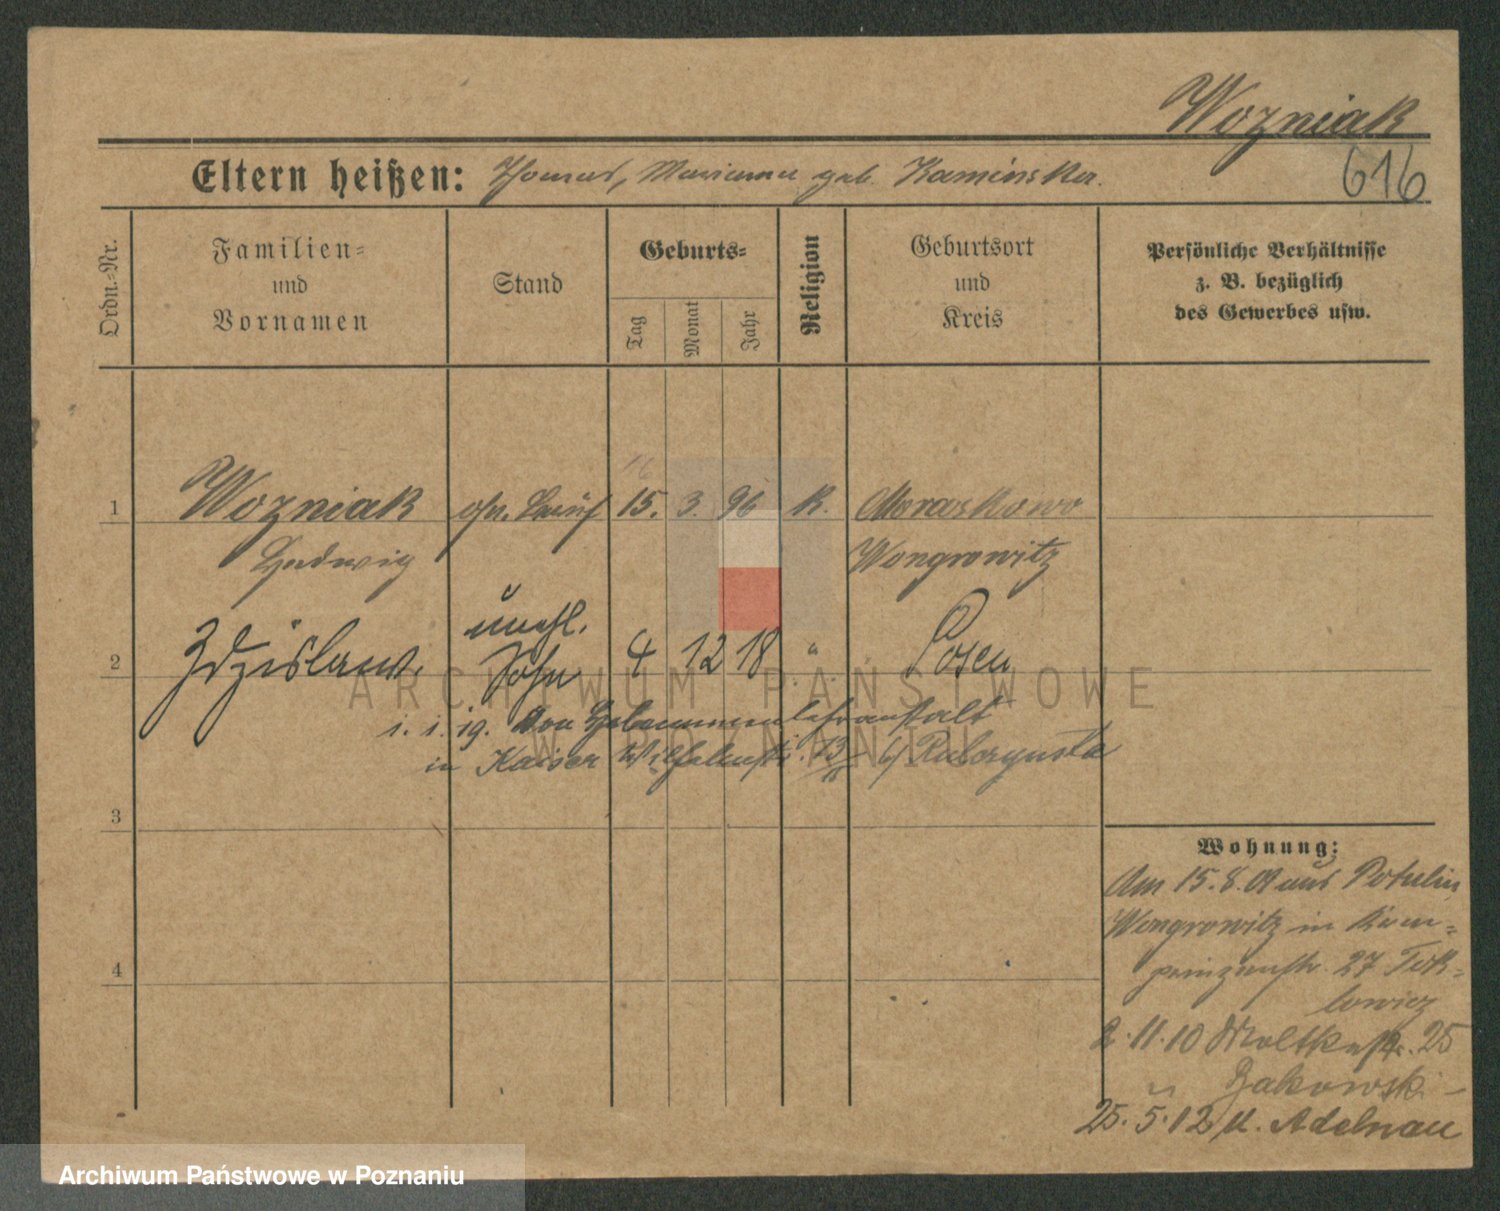 Wozniak
616
Eltern heißen: Thomas, Marianna geb. Kaminska.
Ordn.-Nr.
Familien-
und
Vornamen
Stand
Geburts-
Tag
Monat
Jahr
Religion
Geburtsort
und
Kreis
Persönliche Verhältnisse
z. B. bezüglich
des Gewerbes usw.
16
1 Wozniak 15. 3. 96 K.
Wongrowitz
unehl.
2 Zdzislaw. Sohn 4 12 18 " Posen
1. 1. 19. Von Hebammenlehranstalt
in Kaiser Wilhelmstr. 13
3
4
Wohnung:
Am 15.8.09 aus Potulin
Wongrowitz in Kron-
prinzenstr. 27 Tok-
lowicz
2.11.10 Moltkestr. 25
b. Zakowski
25.5.12 n. Adelnau
ARCHIWUM PAŃSTWOWE
W POZNANIU
Archiwum Państwowe w Poznaniu